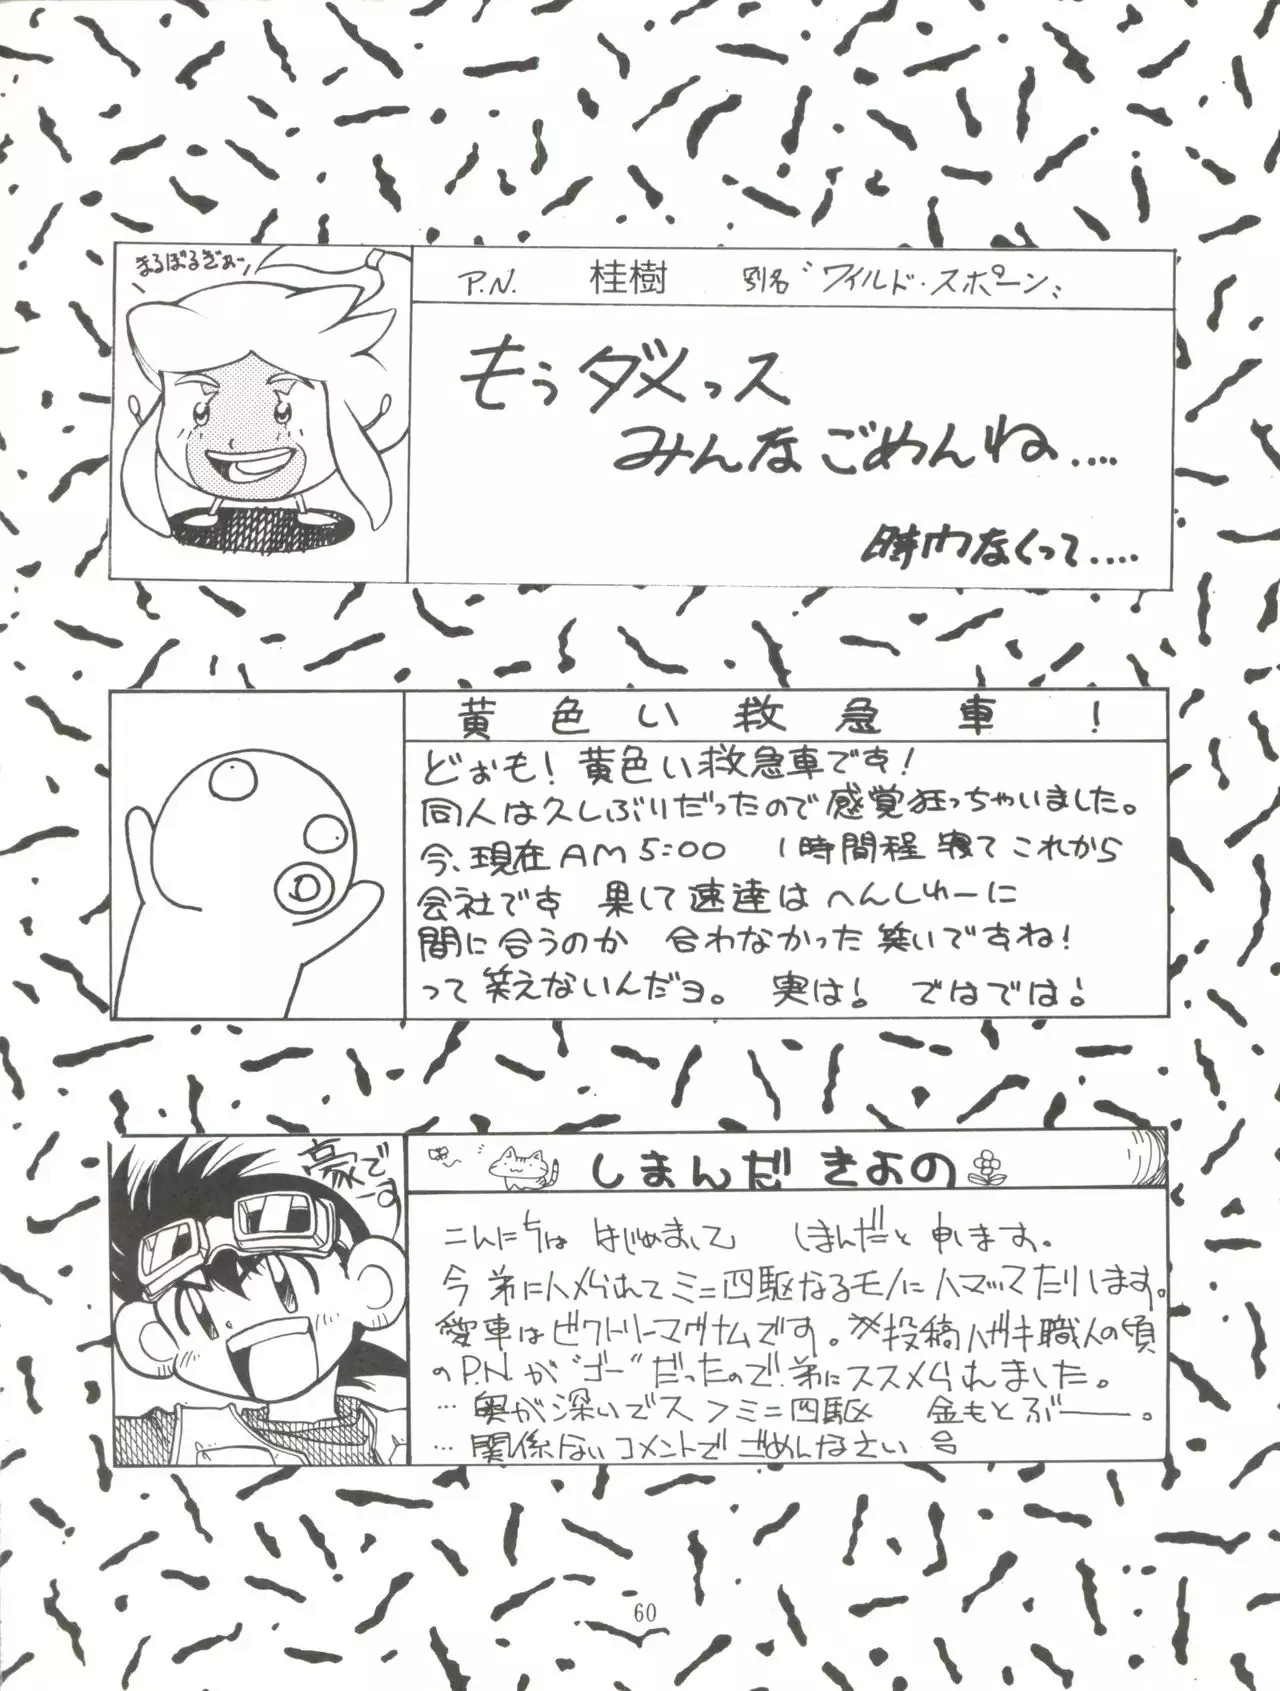 まるぼるぎぁー
P.N. 桂樹 別名〝ワイルド・スポーン〟
もうダメっス
みんなごめんね....
時間なくって....
黄色い救急車！
どぉも！黄色い救急車です！
同人は久しぶりだったので感覚狂っちゃいました。
今、現在AM5:00 1時間程寝てこれから
会社です 果して速達はへんしゅーに
間に合うのか 合わなかった笑いですね！
って笑えないんだヨ。 実は！ ではでは！
豪でーす
しまんだきよの
こんにちは はじめまして しまんだと申します。
今弟にハメられてミニ四駆なるモノにハマッてたりします。
愛車はビクトリーマグナムです。※投稿ハガキ職人の頃
のP.N.が〝ゴー〟だったので弟にススメられました。
…奥が深いでスゥミニ四駆 金もとぶ――。
…関係ないコメントでごめんなさい
60